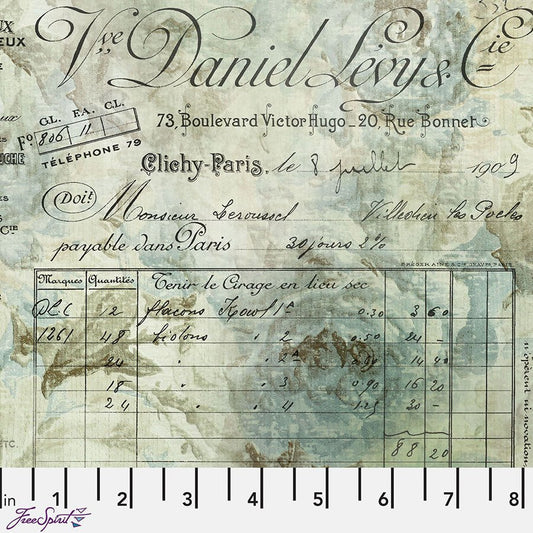 UX
EUX
Vve Daniel Lévy & Cie
73, Boulevard Victor Hugo _ 20, Rue Bonnet
GL. FA. CL.
Fo 806 11
TÉLÉPHONE 79
UCHE
Clichy-Paris, le 8 juillet 1909
Doit Monsieur Leroussel Villedieu les Poëles
CIE
payable dans Paris 30 jours 2%
Marques Quantités Tenir le Cirage en lieu sec
12 flacons 1A 0.30 3 60
1261 48 bidons " 2 0.50 24 -
24 " " 2A 14 40
18 " " 3 0.90 16 20
24 " " 4 1.25 30 -
88 20
ETC.
n'opèrent ni novation
in 1 2 3 4 5 6 7 8
FreeSpirit